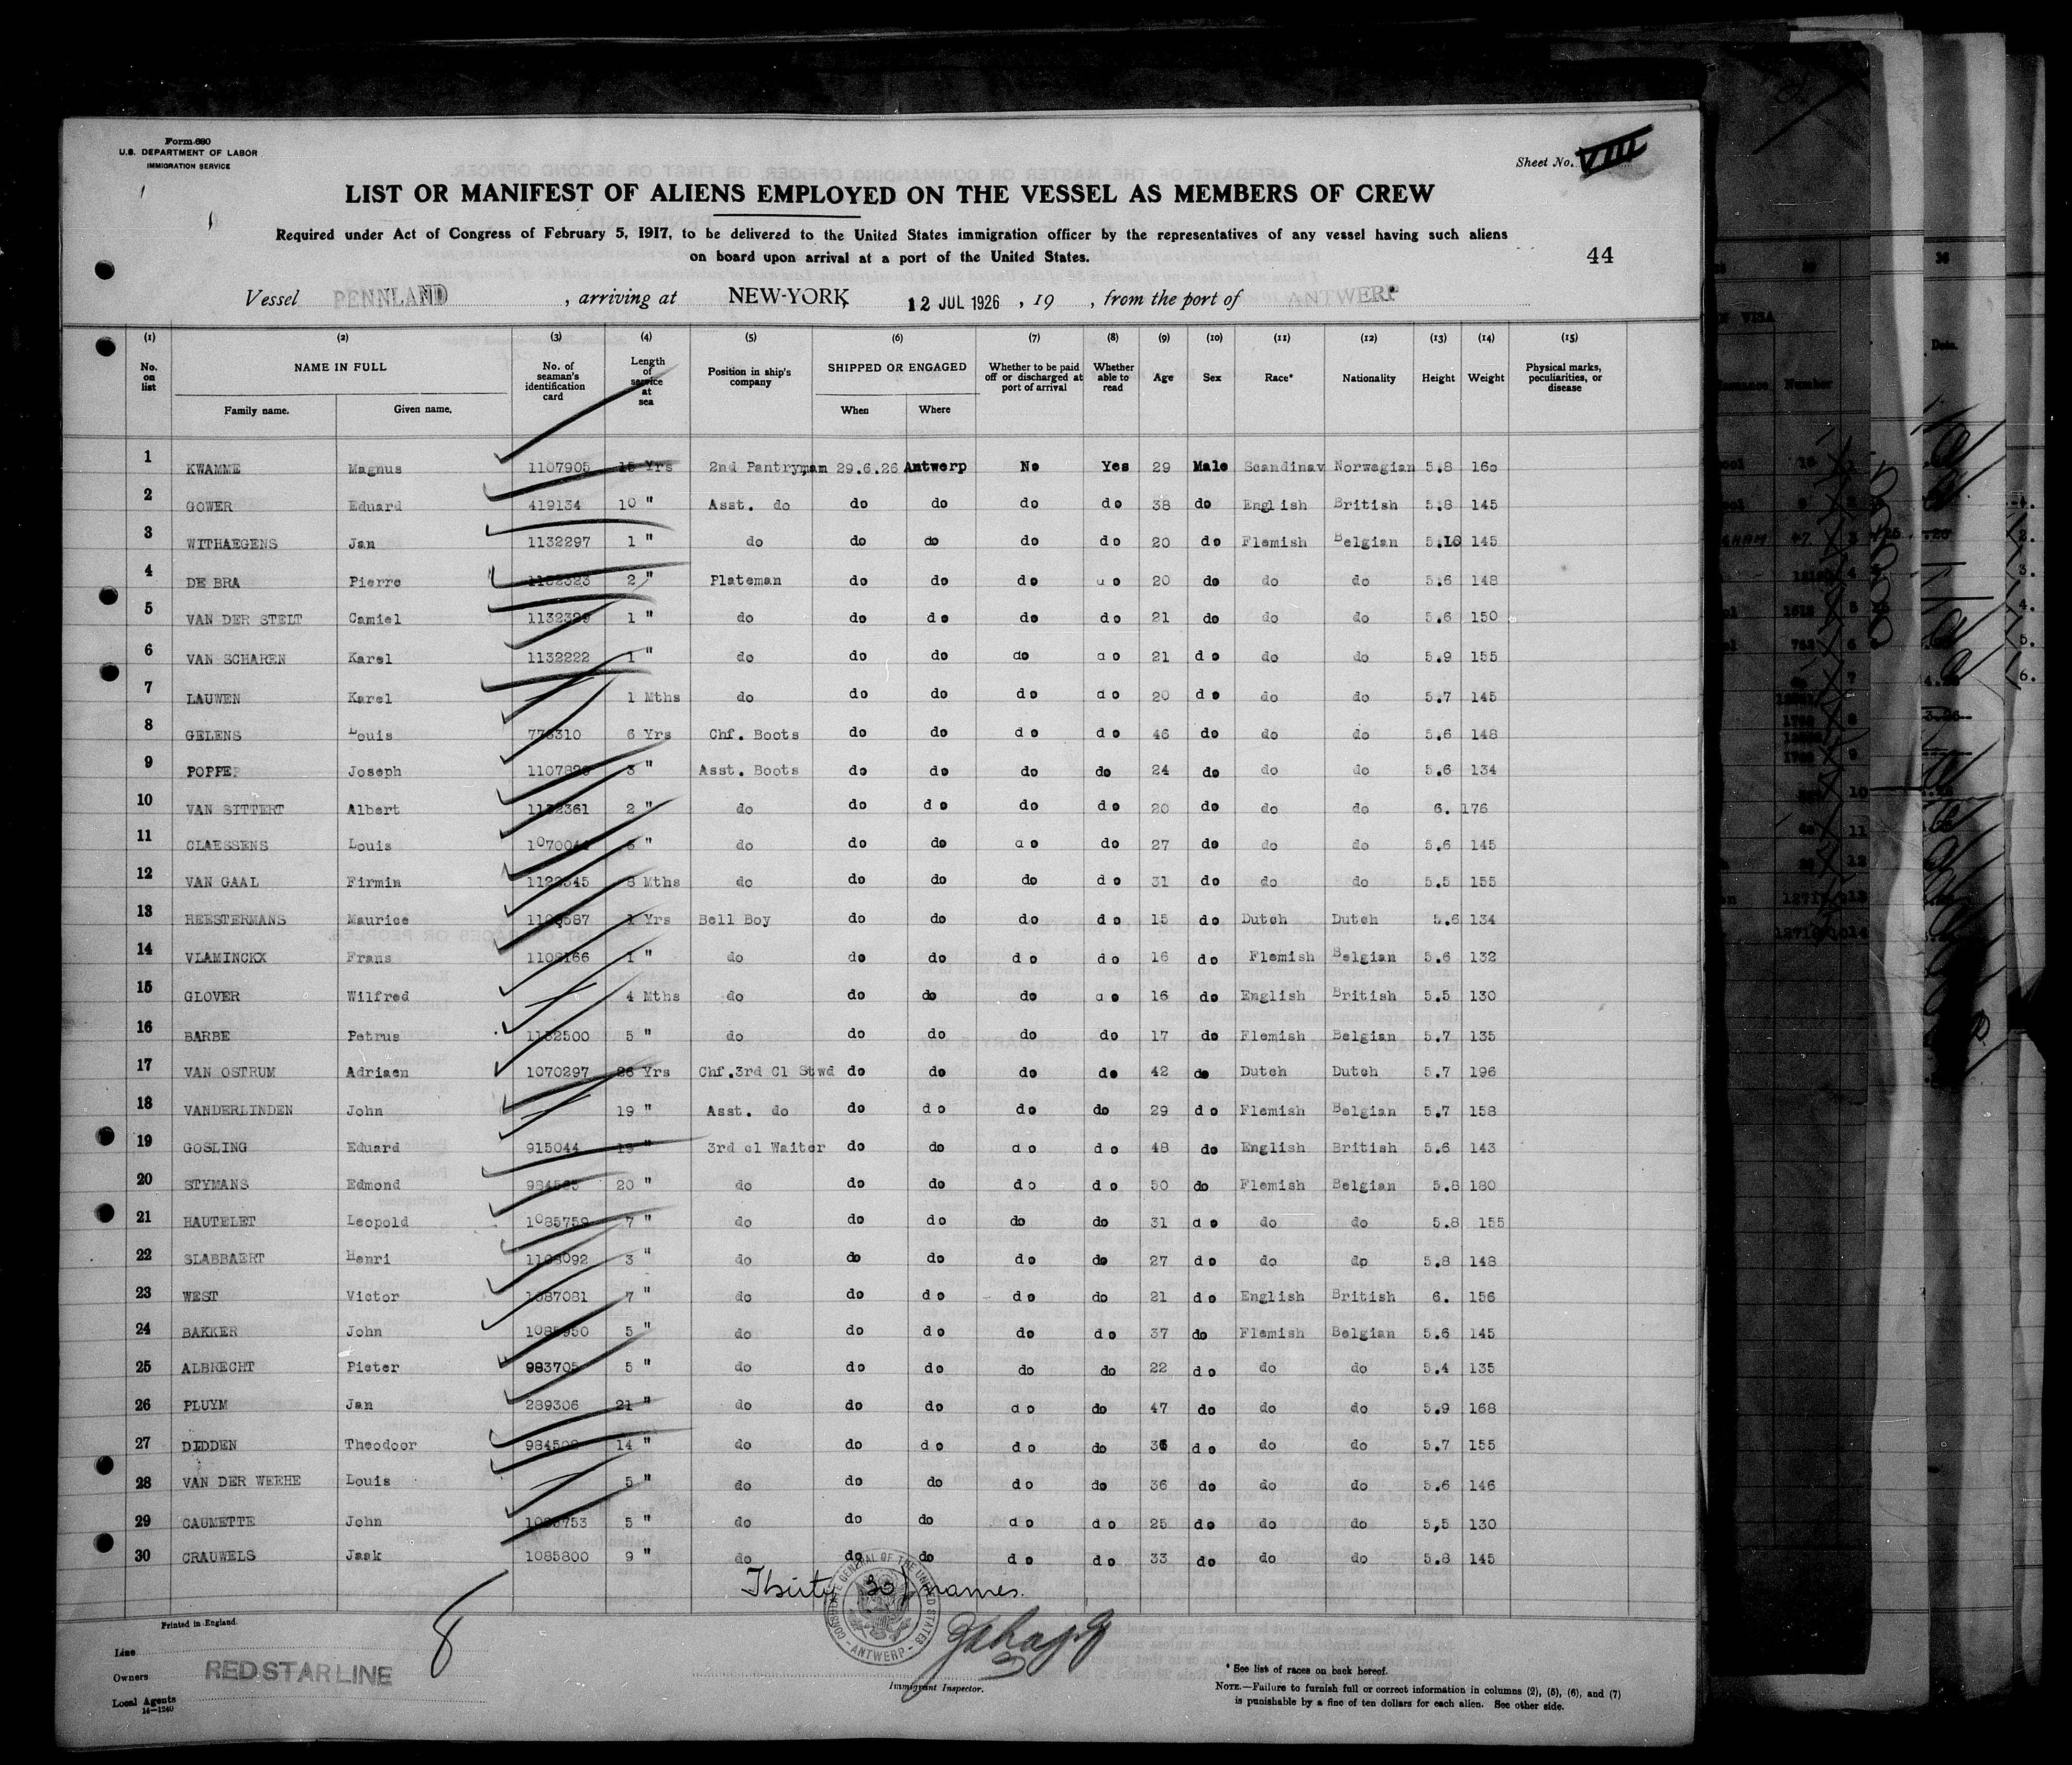 Form 680
U.S. DEPARTMENT OF LABOR
IMMIGRATION SERVICE
Sheet No. VIII
LIST OR MANIFEST OF ALIENS EMPLOYED ON THE VESSEL AS MEMBERS OF CREW
Required under Act of Congress of February 5, 1917, to be delivered to the United States immigration officer by the representatives of any vessel having such aliens
on board upon arrival at a port of the United States.
44
Vessel PENNLAND , arriving at NEW-YORK, 12 JUL 1926 , 19 , from the port of ANTWERP
(1) (2) (3) (4) (5) (6) (7) (8) (9) (10) (11) (12) (13) (14) (15)
No. on list NAME IN FULL Family name. Given name. No. of seaman's identification card Length of service at sea Position in ship's company SHIPPED OR ENGAGED When Where Whether to be paid off or discharged at port of arrival Whether able to read Age Sex Race* Nationality Height Weight Physical marks, peculiarities, or disease
1 KWAMME Magnus 1107905 15 Yrs 2nd Pantryman 29.6.26 Antwerp No Yes 29 Male Scandinav Norwegian 5.8 160
2 GOWER Eduard 419134 10 " Asst. do do do do do 38 do English British 5.8 145
3 WITHAEGENS Jan 1132297 1 " do do do do do 20 do Flemish Belgian 5.10 145
4 DE BRA Pierre 1132323 2 " Plateman do do do do 20 do do do 5.6 148
5 VAN DER STELT Camiel 1132329 1 " do do do do do 21 do do do 5.6 150
6 VAN SCHAREN Karel 1132222 1 " do do do do do 21 do do do 5.9 155
7 LAUWEN Karel 1 Mths do do do do do 20 do do do 5.7 145
8 GELENS Louis 773310 6 Yrs Chf. Boots do do do do 46 do do do 5.6 148
9 POPPE Joseph 3 " Asst. Boots do do do do 24 do do do 5.6 134
10 VAN SITTERT Albert 1132361 2 " do do do do do 20 do do do 6. 176
11 CLAESSENS Louis " do do do do do 27 do do do 5.6 145
12 VAN GAAL Firmin 8 Mths do do do do do 31 do do do 5.5 155
13 HEESTERMANS Maurice 1 Yrs Bell Boy do do do do 15 do Dutch Dutch 5.6 134
14 VLAMINCKX Frans 1108166 1 " do do do do do 16 do Flemish Belgian 5.6 132
15 GLOVER Wilfred 4 Mths do do do do do 16 do English British 5.5 130
16 BARBE Petrus 1132500 5 " do do do do do 17 do Flemish Belgian 5.7 135
17 VAN OSTRUM Adriaen 1070297 26 Yrs Chf.3rd Cl Stwd do do do do 42 do Dutch Dutch 5.7 196
18 VANDERLINDEN John 19 " Asst. do do do do do 29 do Flemish Belgian 5.7 158
19 GOSLING Eduard 915044 19 " 3rd cl Waiter do do do do 48 do English British 5.6 143
20 STYMANS Edmond 20 " do do do do do 50 do Flemish Belgian 5.8 180
21 HAUTELET Leopold 1085759 7 " do do do do do 31 do do do 5.8 155
22 SLABBAERT Henri 1108092 3 " do do do do do 27 do do do 5.8 148
23 WEST Victor 1087081 7 " do do do do do 21 do English British 6. 156
24 BAKKER John 1085950 5 " do do do do do 37 do Flemish Belgian 5.6 145
25 ALBRECHT Pieter 983705 5 " do do do do do 22 do do do 5.4 135
26 PLUYM Jan 289306 21 " do do do do do 47 do do do 5.9 168
27 DIDDEN Theodoor 14 " do do do do do 36 do do do 5.7 155
28 VAN DER WEEHE Louis 5 " do do do do do 36 do do do 5.6 146
29 CAUMETTE John 5 " do do do do do 25 do do do 5,5 130
30 CRAUWELS Jaak 1085800 9 " do do do do do 33 do do do 5.8 145
Thirty 30 names.
CONSULATE GENERAL OF THE UNITED STATES - ANTWERP -
Printed in England.
8
Line
Owners RED STAR LINE
Local Agents
14-1240
Immigrant Inspector.
* See list of races on back hereof.
NOTE.—Failure to furnish full or correct information in columns (2), (5), (6), and (7)
is punishable by a fine of ten dollars for each alien. See other side.